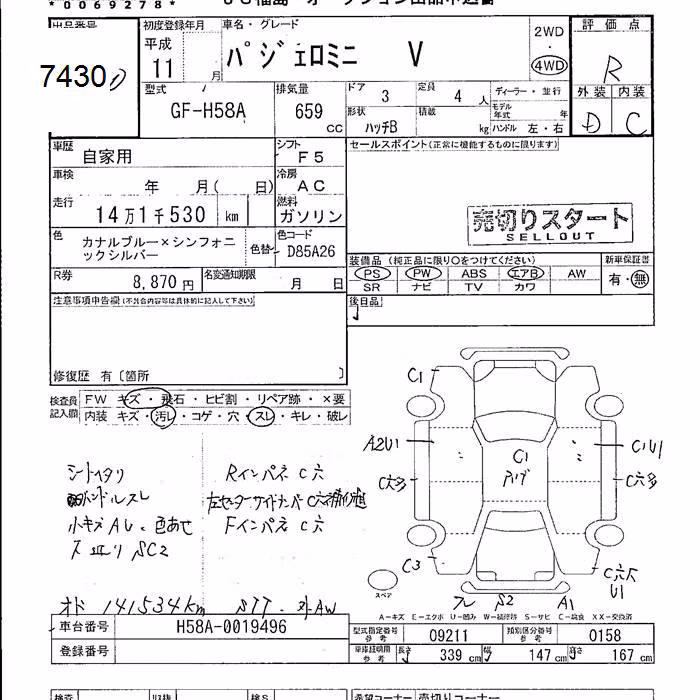 * 0 0 6 9 2 7 8 *
出品番号
74300
初度登録年月
平成
11 月
車名・グレード
パジェロミニ V
2WD
4WD
評価点
R
外装 内装
D C
型式
GF-H58A
排気量
659 CC
ドア 3
定員 4 人
ディーラー・並行
形状 ハッチB
積載 kg
モデル年式 年
ハンドル 左・右
車歴 自家用
シフト F5
車検 年 月( 日)
冷房 AC
走行 14万1千530 km
燃料 ガソリン
色 カナルブルー×シンフォニックシルバー
色替
色コード D85A26
R券 8,870円
名変通知期限 月 日
セールスポイント(正常に機能するものに限ります)
売切りスタート
SELLOUT
装備品 (純正品に限り○をつけてください)
新車保証書
PS PW ABS エアB AW
SR ナビ TV カワ
有・無
後日品
注意事項申告欄(不具合内容等は具体的に記入して下さい)
修復歴 有〔箇所 〕
検査員記入欄
FW キズ・飛石・ヒビ割・リペア跡・×要
内装 キズ・汚レ・コゲ・穴・スレ・キレ・破レ
シートヘタリ
ハンドルスレ
小キズAU、色あせ
SC2
RインパネC穴
FインパネC穴
オド 141534km STT・外AW
C1
A2U1
C穴多
C3
C1
C1U1
C穴多
C穴
U1
S2
A1
スペア
A-キズ E-エクボ U-凹み W-補修跡 S-サビ C-腐食 XX-交換済
車台番号 H58A-0019496
登録番号
型式指定番号 参考 09211
類別区分番号 参考 0158
車検証明用 参考 長さ 339 cm 幅 147 cm 高さ 167 cm